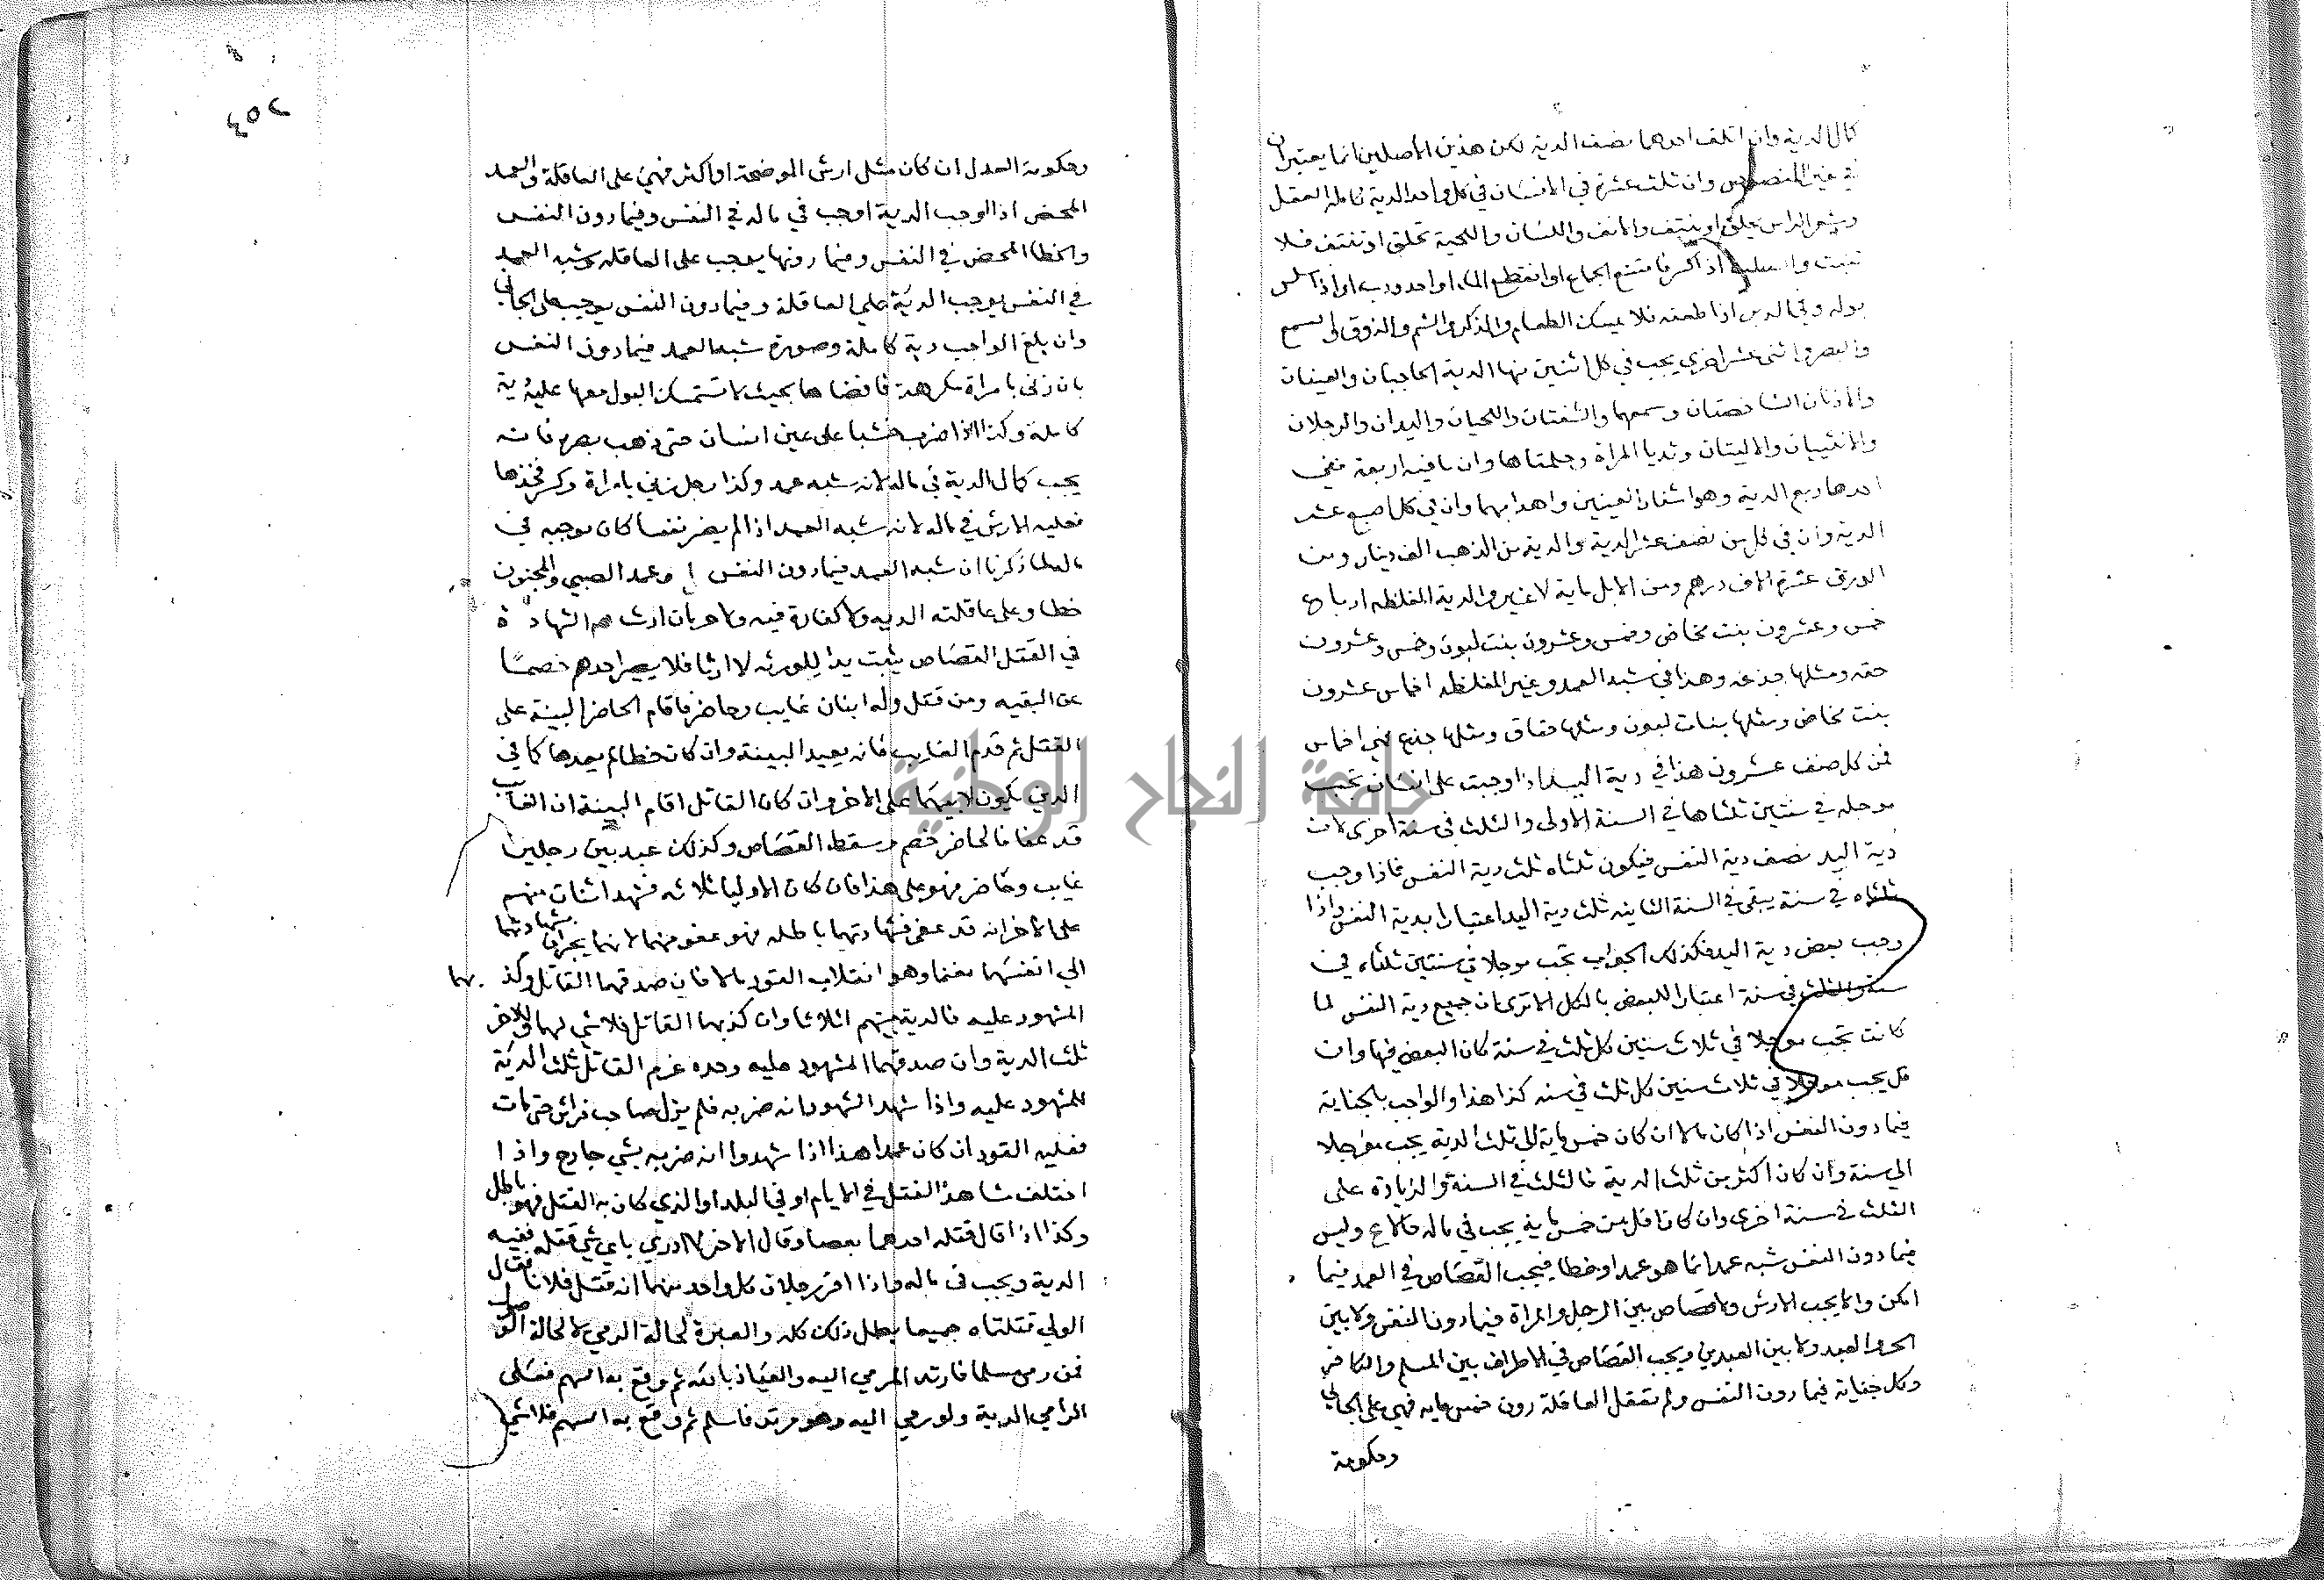 كمال الدية وان اتلف احدهما نصف الدية لكن هذين الاصلين انما يعتبران
في غير المنصوص وان ثلث عشرة في الانسان في كل واحد الدية كاملة العقل
وشعر الراس يحلق او ينتف والانف واللسان واللحية تحلق او تنتف فلا
تنبت والصلب اذا كسر فامتنع الجماع او انقطع الماء او احدودب او اذا سلس
بوله وفي الدبر اذا طعنه فلا يمسك الطعام والذكر والشم والذوق والسمع
والبصر واثنى عشر اخرى يجب في كل اثنين منها الدية الحاجبان والعينان
والاذنان الشاخصتان وسمعهما والشفتان واللحيان واليدان والرجلان
والانثييان والاليتان وثديا المراة وحلمتاها وان ما فيه اربعة ففي
احدها ربع الدية وهو اشفار العينين واهدابهما وان في كل اصبع عشر
الدية وان في كل سن نصف عشر الدية والدية من الذهب الف دينار ومن
الورق عشرة الاف درهم ومن الابل ماية لا غير والدية المغلظه ارباع
خمس وعشرون بنت مخاض وخمس وعشرون بنت لبون وخمس وعشرون
حقه ومثلها جذعه وهذا في شبه العمد وغير المغلظه اخماس عشرون
بنت مخاض ومثلها بنات لبون ومثلها حقاق ومثلها جذع فهي اخماس
فمن كل صنف عشرون هذا في دية اليد اذا وجبت على انسان تجب
موجله في سنتين ثلثاها في السنة الاولى والثلث في سنة اخرى لان
دية اليد نصف دية النفس فيكون ثلثاه ثلث دية النفس فاذا وجب
ثلثاه في سنة يبقى في السنة الثانيه ثلث دية اليد اعتبارا بدية النفس واذا
وجب بعض دية اليد فكذلك الجواب تجب موجلا في سنتين ثلثاه في
سنة والثلث في سنة اعتبارا للبعض بالكل الا ترى ان جميع دية النفس لما
كانت تجب موجلا في ثلاث سنين كل ثلث في سنة كان البعض فيها وان
قل يجب موجلا في ثلاث سنين كل ثلث في سنه كذا هذا والواجب بالجناية
فيما دون النفس اذا كان مالا ان كان خمس ماية الى ثلث الدية يجب موجلا
الي سنة وان كان اكثر من ثلث الدية فالثلث في السنة والزيادة على
الثلث في سنة اخرى وان كان اقل من خمس ماية يجب في ماله وليس
فيما دون النفس شبه عمد انما هو عمد او خطا فيجب القصاص في العمد فيما
امكن والا يجب الارش ولا قصاص بين الرجل والمراة فيما دون النفس ولا بين
الحر والعبد ولا بين العبدين ويجب القصاص في الاطراف بين المسلم والكافر
وكل جناية فيما دون النفس ولم تعقل العاقلة دون خمس مايه فهي على الجاني
وحكومة
٢٥٤
وحكومة العدل ان كان مثل ارش الموضحة او اكثر فهي على العاقلة والعمد
المحض اذا اوجب الدية اوجب في ماله في النفس وفيما دون النفس
والخطا المحض في النفس وفيما دونها يوجب على العاقله وشبه العمد
في النفس يوجب الدية على العاقلة وفيما دون النفس يوجب على الجاني
وان بلغ الواجب دية كاملة وصورة شبه العمد فيما دون النفس
بان زنى بامراة مكرهة فافضاها بحيث لا تستمسك البول معها عليه دية
كاملة وكذا اذا ضرب خشبا على عين انسان حتى ذهب بصره فانه
يجب كمال الدية في ماله لانه شبه عمد وكذا رجل زني بامراة وكسر فخذها
فعليه الارش في ماله لانه شبه العمد اذا لم يصر نفسا كان موجبه في
ماله لما ذكرنا ان شبه العمد فيما دون النفس وعمد الصبي والمجنون
خطا وعلى عاقلته الديه ولا كفارة فيه ولا حرمان ارث م الشهادة
في القتل القصاص يثبت بدا للورثه لا ارثا فلا يصير احدهم خصما
عن البقيه ومن قتل وله ابنان غايب وحاضر فاقام الحاضر البينة على
القتل ثم قدم الغايب فانه يعيد البينة وان كان خطا لم يعدها كما في
الدين يكون لابيهما على الاخر وان كان القاتل اقام البينة ان الغايب
قد عفا فالحاضر خصم وسقط القصاص وكذلك عبد بين رجلين
غايب وحاضر فهو على هذا فان كان الاوليا ثلاثه فشهد اثنان منهم
على الاخر انه قد عفى فشهادتهما باطله فهو عفو منهما لانهما يجران بشهادتهما
الي انفسهما مغنما وهو انقلاب القود مالا فان صدقهما القاتل وكذبهما
المشهود عليه فالدية بينهم اثلاثا وان كذبهما القاتل فلا شي لهما وللاخر
ثلث الدية وان صدقهما المشهود عليه وحده غرم القاتل ثلث الدية
للمشهود عليه واذا شهد الشهود انه ضربه فلم يزل صاحب فراش حتى مات
فعليه القود ان كان عمدا هذا اذا شهدوا انه ضربه بشي جارح واذا
اختلف شاهدا القتل في الايام او في البلد او الذي كان به القتل فهو باطل
وكذا اذا قال قتله احدهما بعصا وقال الاخر لا ادري باي شي قتله ففيه
الدية ويجب في ماله واذا اقر رجلان كل واحد منهما انه قتل فلانا فقال
الولي قتلتماه جميعا بطل ذلك كله والعبرة لحالة الرمي لا لحالة الوصول
فمن رمى مسلما فارتد المرمي اليه والعياذ بالله ثم وقع به السهم فعلى
الرامي الدية ولو رمي اليه وهو مرتد فاسلم ثم وقع به السهم فلا شي
جامعة النجاح الوطنية